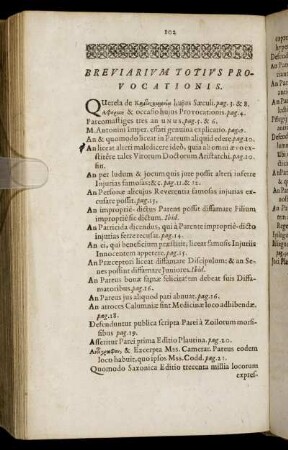 102
BREVIARIVM TOTIVS PRO-
VOCATIONIS.
Querela de hujus Sæculi. pag. 3. & 8.
& occasio hujus Provocationis. pag. 4.
Patromastiges tres an unus. pag. 5. & 6.
M. Antonini Imper. effati genuina explicatio. pag. 9.
An & quomodo liceat in Parentem aliquid edere. pag. 10.
An liceat alteri maledicere ideò, quia ab omni ævo ex-
stitêre tales Virorum Doctorum Aristarchi. pag. 10.
fin.
An per ludum & jocum quis jure possit alteri inferre
Injurias famosas: &c. pag. 11. & 12.
An Personæ alterius Reverentia famosus injurias ex-
cusare possit. pag. 13.
An impropriè-dictus Parens possit diffamare Filium
impropriè sic dictum. Ibid.
An Patricida dicendus, qui à Parente impropriè-dicto
injurias ferre recusat. pag. 14.
An ei, qui beneficium præstitit, liceat famosis Injuriis
Innocentem appetere. pag. 15.
An Præceptori liceat diffamare Discipulum: & an Se-
nes possint diffamare Juniores. Ibid.
An Parens bonæ famæ felicitatem debeat suis Diffa-
matoribus. pag. 16.
An Pareus jus aliquod pati abnuat. pag. 16.
An atroces Calumniæ sint Medicinæ loco adhibendæ.
pag. 18.
Defenduntur publica scripta Parei à Zoilorum morsi-
bus pag. 19.
Asseritur Parei prima Editio Plautina. pag. 20.
& Excerpta Mss. Camerar. Pareus eodem
loco habuit, quo ipsos Mss. Codd. pag. 21.
Quomodo Saxonica Editio trecenta millia locorum
expres-